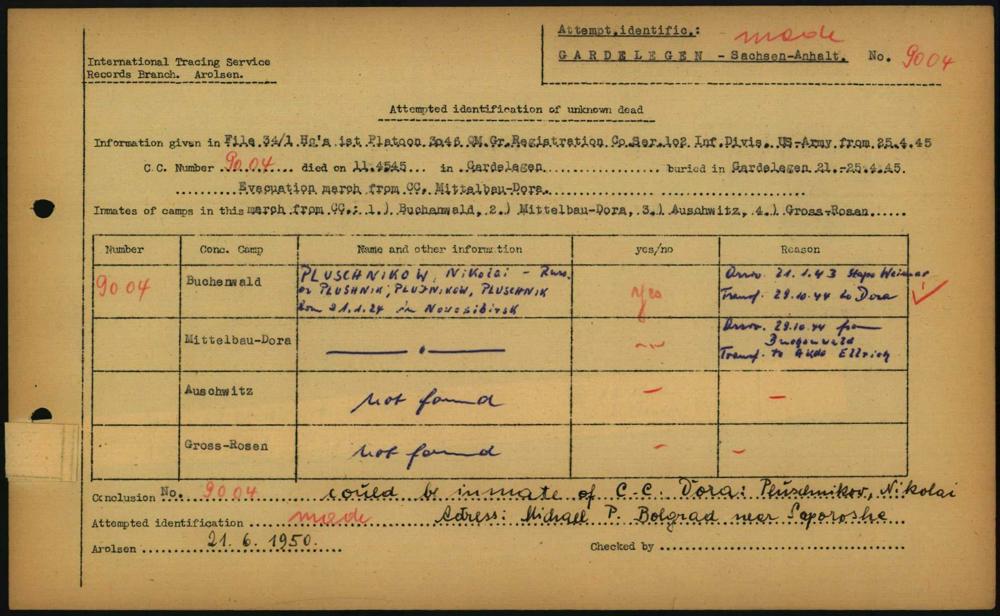 Attempt.identific.: made
GARDELEGEN - Sachsen-Anhalt. No. 9004
International Tracing Service
Records Branch. Arolsen.
Attempted identification of unknown dead
Information given in File 34/1 Hq's 1st Platoon 3046 QM.Gr.Registration Co.Ser.102 Inf.Divis. US-Army from 25.4.45
C.C. Number 9004 died on 11.4545 in Gardelegen buried in Gardelegen 21.-25.4.45
Evacuation march from CC. Mittelbau-Dora.
Inmates of camps in this march from CC.: 1.) Buchenwald, 2.) Mittelbau-Dora, 3.) Auschwitz, 4.) Gross-Rosen
Number Conc. Camp Name and other information yes/no Reason
9004 Buchenwald PLUSCHNIKOW, Nikolai - Russ. yes Arriv. 21.1.43 Stapo Weimar
or PLUSHNIK, PLUJNIKOW, PLUSCHNIK Transf. 29.10.44 to Dora
born 21.1.24 in Novosibirsk
Mittelbau-Dora — . — -"- Arriv. 29.10.44 from
Buchenwald
Transf. to AKdo Ellrich
Auschwitz not found - -
Gross-Rosen not found - -
Conclusion No. 9004 could be inmate of C.C. Dora: Pluschnikov, Nikolai
Attempted identification made Adress: Michael P. Bolgrad near Saporoshe
Arolsen 21.6.1950. Checked by